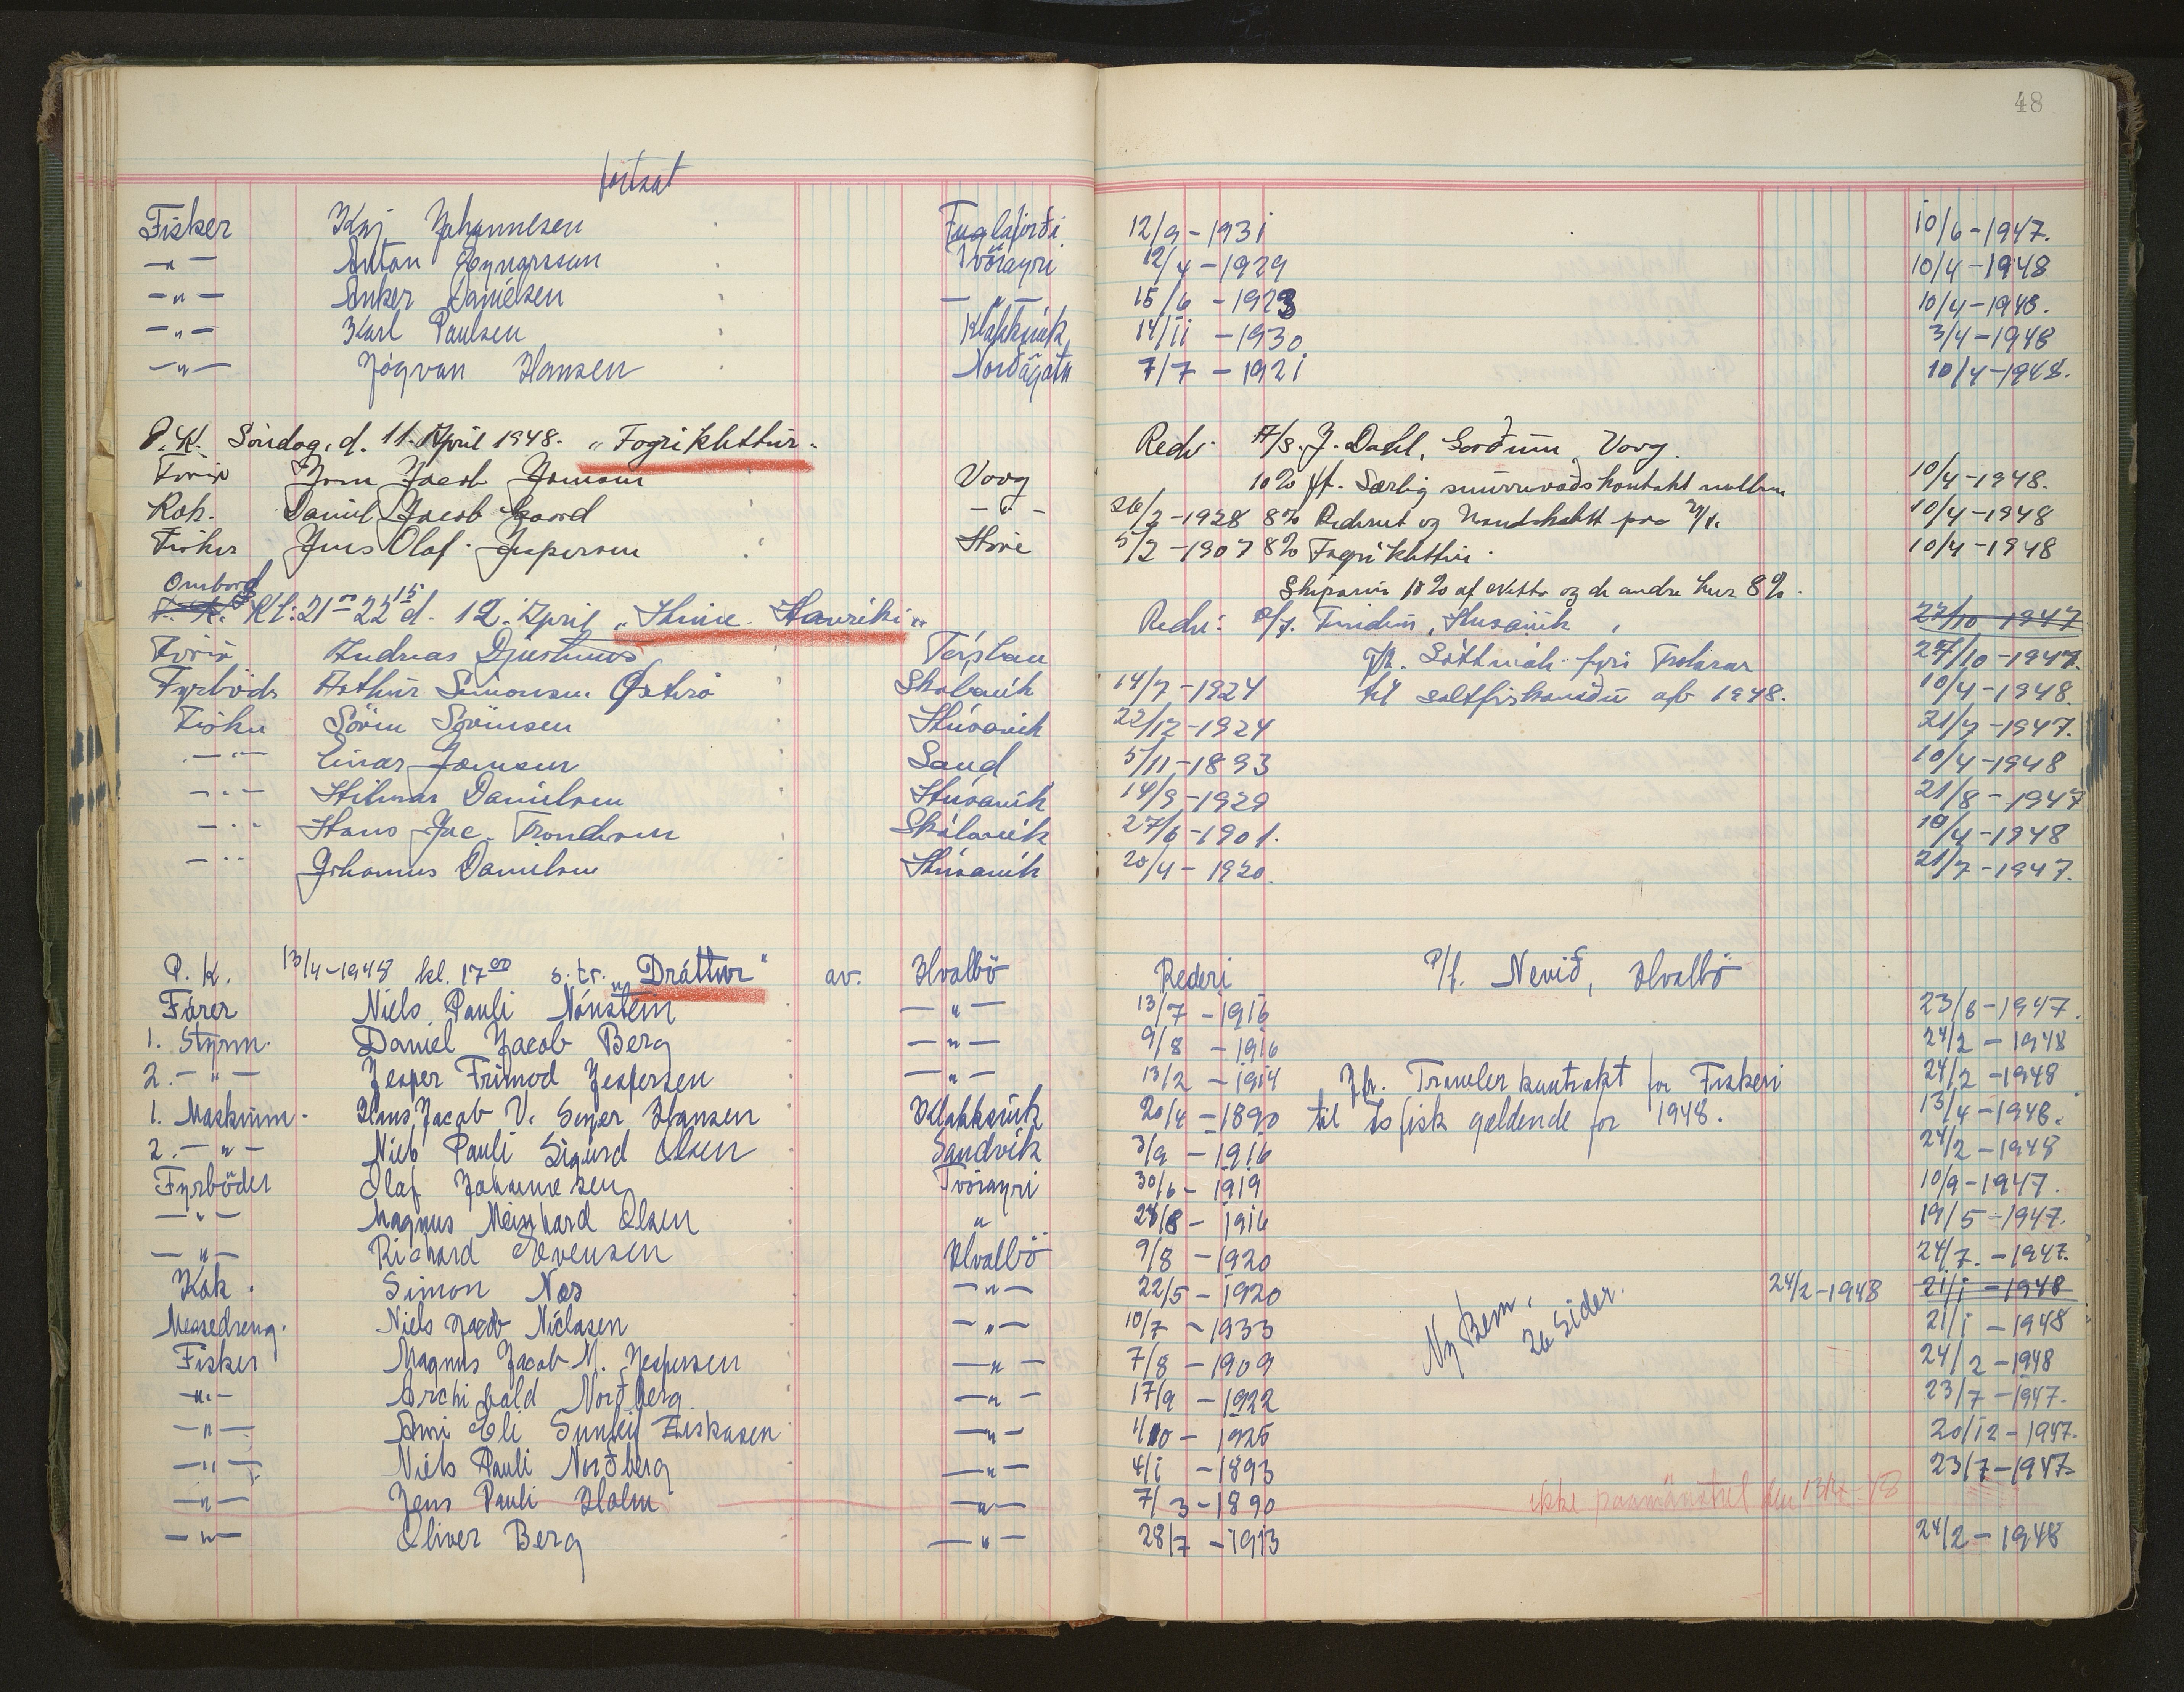 48
fortsat
Fisker Kaj Johannesen Fuglafjørði 12/9-1931 10/6-1947.
-"- Anton Tvörayri 12/4-1929 10/4-1948
-"- Anker Danielsen -"- 15/6-1923 10/4-1948.
-"- Karl Paulsen Klakksvik 14/11-1930 3/4-1948
-"- Jógvan Hansen Norðagøtu 7/7-1921 10/4-1948.
P.K. Söndag, d. 11. April 1948. "Fagriklettur" Rederi A/S. J. Dahl, Vaag.
Förer Jacob Vaag 10% jfr. Særlig kontrakt mellem 10/4-1948.
Kok. Daniel Jacob -"- 26/2-1928 8% Rederiet og paa 10/4-1948
Fisker Jens Olaf Jespersen Hove 5/2-1907 8% Fagriklettur. 10/4-1948
Skiparin 10% af Netto og de andre hver 8%.
Ombord P.K. Kl: 21 - 22 15 d. 12. April "Skine Havreki" Rederi: P/f. Húsavik 27/10-1947
Förer Andreas 27/10-1947.
Fyrböder Arthur Simonsen Østerö Skálavik 14/7-1924 saltfiskaveiðu 1948. 10/4-1948.
Fisker Sörin Sörinsen Húsavik 22/12-1924 21/7-1947.
-"- Einar Joensen Sand 5/11-1893 10/4-1948
-"- Hilmar Danielsen Húsavik 14/9-1929 21/8-1947
-"- Hans Jac. Trondesen Skálavik 27/6-1901. 10/4-1948
-"- Johannes Danielsen Húsavik 20/4-1920. 21/7-1947.
P.K. 13/4-1948 kl. 17 00 s.tr. "Dráttur" av. Hvalbö Rederi P/f. Nevið, Hvalbö
Förer Niels Pauli Nónstein -"- 13/7-1916 23/6-1947.
1. Styrm. Daniel Jacob Berg -"- 9/8-1916 24/2-1948
2. -"- Jesper Frimod Jespersen -"- 13/2-1914 Jfr. Trawlerkontrakt for Fiskeri 24/2-1948
1. Maskinm. Hans Jacob V. Sejer Hansen Klakksvik 20/4-1890 til Isfisk gældende for 1948. 13/4-1948.
2. -"- Niels Pauli Sigurd Olsen Sandvík 3/9-1916 24/2-1948
Fyrböder Olaf Johannesen Tvörayri 30/6-1919 10/9-1947.
-"- Magnus Meinhard Olsen " 28/8-1916 19/5-1947.
-"- Richard Evensen Hvalbö 9/8-1920 24/7.-1947.
Kok. Simon Næs -"- 22/5-1920 24/2-1948 21/1-1948
Messedreng. Niels Jacob Niclasen -"- 10/7-1933 Ny Bem. 26 Sider. 21/1-1948
Fisker Magnus Jacob M. Jespersen -"- 7/8-1909 24/2-1948
-"- Archibald Norðberg -"- 17/9-1922 23/7-1947.
-"- Eli Sunleif -"- 1/10-1925 20/12-1947.
-"- Niels Pauli Norðberg -"- 4/1-1893 23/7-1947
-"- Jens Pauli Holm -"- 7/3-1890 ikke paamönstret den 13/4-48
-"- Oliver Berg -"- 28/7-1913 24/2-1948